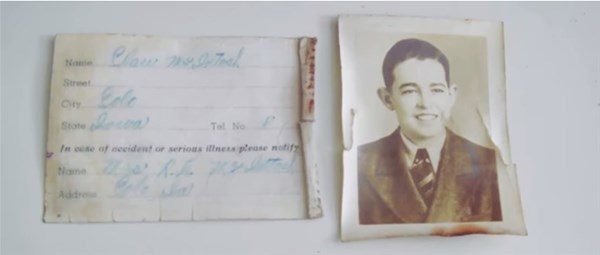 Name Clair McIntosh
Street
City Colo
State Iowa Tel. No. 8
In case of accident or serious illness please notify
Name Mrs. R. E. McIntosh
Address Colo Ia